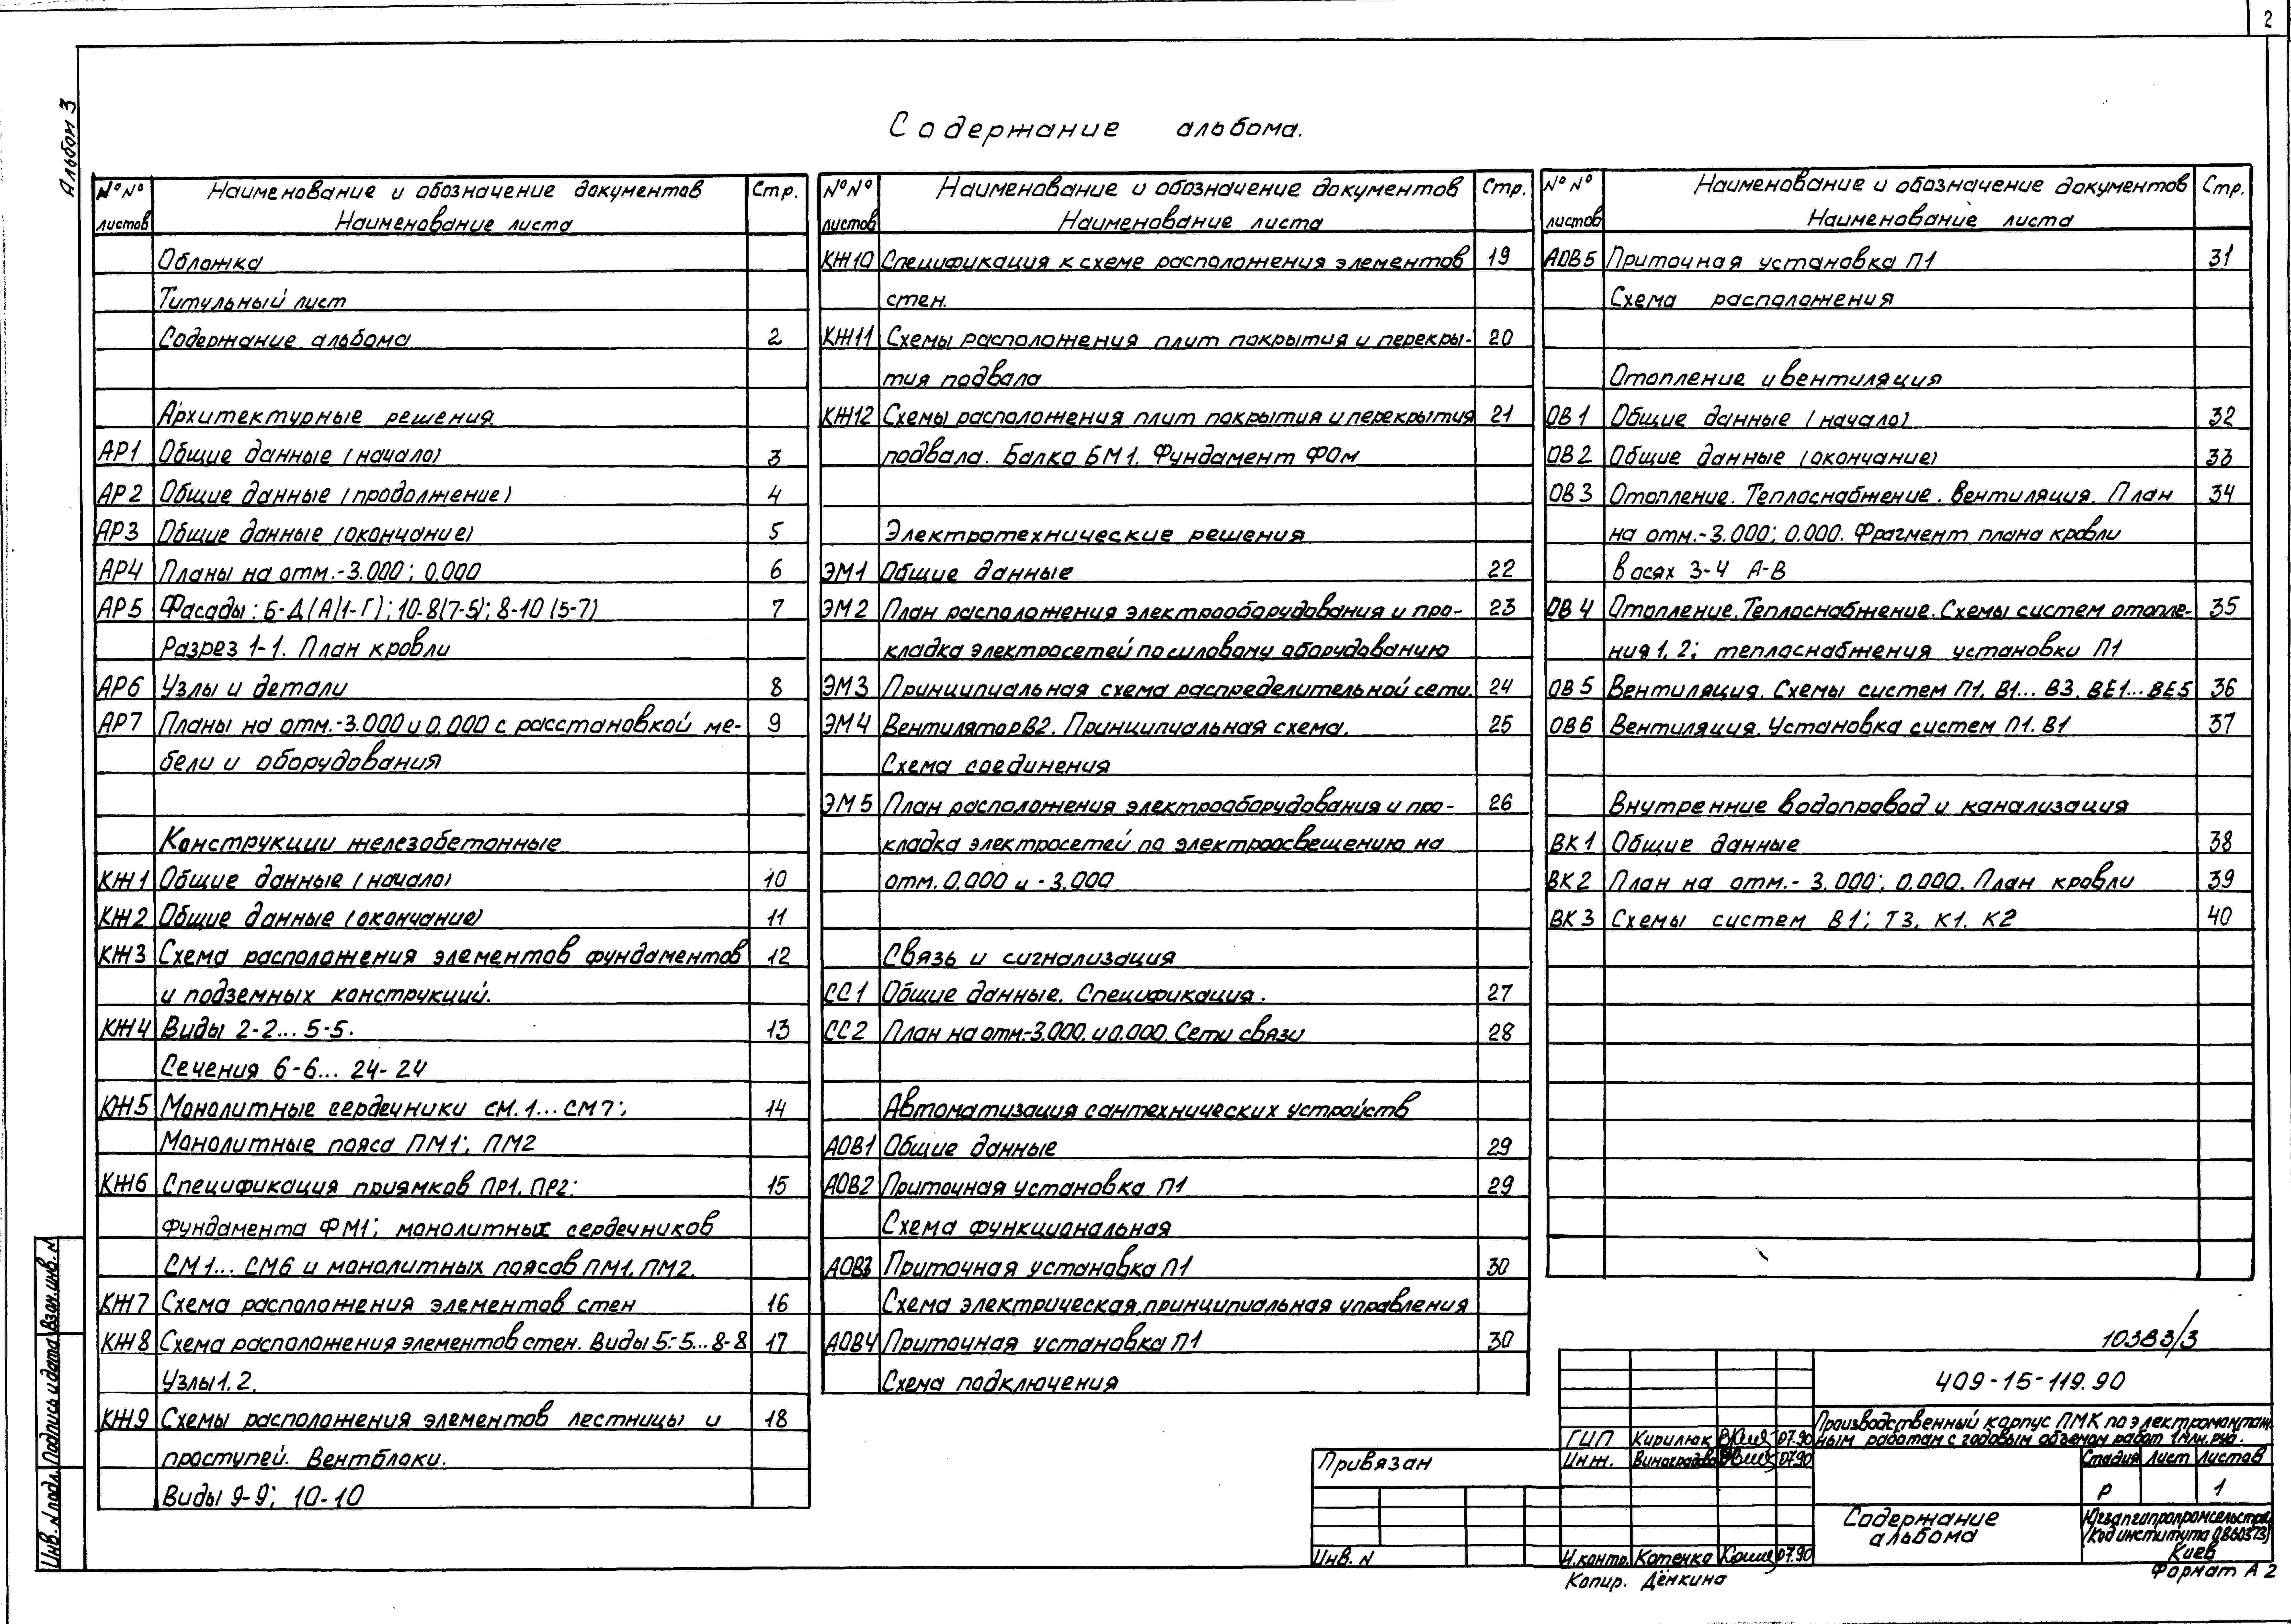 2
Альбом 3
Содержание альбома.
№№ листов
Наименование и обозначение документов
Наименование листа
Стр.
Обложка
Титульный лист
Содержание альбома 2
Архитектурные решения.
АР1 Общие данные (начало) 3
АР2 Общие данные (продолжение) 4
АР3 Общие данные (окончание) 5
АР4 Планы на отм.-3.000; 0.000 6
АР5 Фасады: Б-Д(А)1-Г); 10-8(7-5); 8-10 (5-7) 7
Разрез 1-1. План кровли
АР6 Узлы и детали 8
АР7 Планы на отм.-3.000 и 0.000 с расстановкой ме- 9
бели и оборудования
Конструкции железобетонные
КЖ1 Общие данные (начало) 10
КЖ2 Общие данные (окончание) 11
КЖ3 Схема расположения элементов фундаментов 12
и подземных конструкций.
КЖ4 Виды 2-2... 5-5. 13
Сечения 6-6... 24-24
КЖ5 Монолитные сердечники СМ.1...СМ7; 14
Монолитные пояса ПМ1; ПМ2
КЖ6 Спецификация приямков ПР1, ПР2; 15
фундамента ФМ1; монолитных сердечников
СМ1... СМ6 и монолитных поясов ПМ1, ПМ2.
КЖ7 Схема расположения элементов стен 16
КЖ8 Схема расположения элементов стен. Виды 5-5...8-8 17
Узлы 1, 2.
КЖ9 Схемы расположения элементов лестницы и 18
проступей. Вентблоки.
Виды 9-9; 10-10
№№ листов
Наименование и обозначение документов
Наименование листа
Стр.
КЖ10 Спецификация к схеме расположения элементов 19
стен.
КЖ11 Схемы расположения плит покрытия и перекры- 20
тия подвала
КЖ12 Схемы расположения плит покрытия и перекрытия 21
подвала. Балка БМ1. Фундамент ФОм
Электротехнические решения
ЭМ1 Общие данные 22
ЭМ2 План расположения электрооборудования и про- 23
кладка электросетей по силовому оборудованию
ЭМ3 Принципиальная схема распределительной сети. 24
ЭМ4 Вентилятор В2. Принципиальная схема. 25
Схема соединения
ЭМ5 План расположения электрооборудования и про- 26
кладка электросетей по электроосвещению на
отм. 0.000 и -3.000
Связь и сигнализация
СС1 Общие данные. Спецификация. 27
СС2 План на отм-3.000. и 0.000. Сети связи 28
Автоматизация сантехнических устройств
АОВ1 Общие данные 29
АОВ2 Приточная установка П1 29
Схема функциональная
АОВ3 Приточная установка П1 30
Схема электрическая, принципиальная управления
АОВ4 Приточная установка П1 30
Схема подключения
№№ листов
Наименование и обозначение документов
Наименование листа
Стр.
АОВ5 Приточная установка П1 31
Схема расположения
Отопление и вентиляция
ОВ1 Общие данные (начало) 32
ОВ2 Общие данные (окончание) 33
ОВ3 Отопление. Теплоснабжение. Вентиляция. План 34
на отм.-3.000; 0.000. Фрагмент плана кровли
в осях 3-4 А-В
ОВ4 Отопление. Теплоснабжение. Схемы систем отопле- 35
ния 1, 2; теплоснабжения установки П1
ОВ5 Вентиляция. Схемы систем П1, В1... В3, ВЕ1... ВЕ5 36
ОВ6 Вентиляция. Установка систем П1. В1 37
Внутренние водопровод и канализация
ВК1 Общие данные 38
ВК2 План на отм.- 3.000; 0.000. План кровли 39
ВК3 Схемы систем В1; Т3, К1, К2 40
10383/3
409-15-119.90
Производственный корпус ПМК по электромонтаж-
ным работам с годовым объемом работ 1 млн. руб.
ГИП Кирилюк 07.90
Инж. Виноградова 07.90
Н.контр. Котенко 07.90
Стадия Лист Листов
Р 1
Содержание
альбома
Югзапгипропромсельстрой
(Код института 0860373)
Киев
Привязан
Инв. N
Копир. Дёнкина
Формат А2
Инв. N подл. Подпись и дата Взам.инв. N